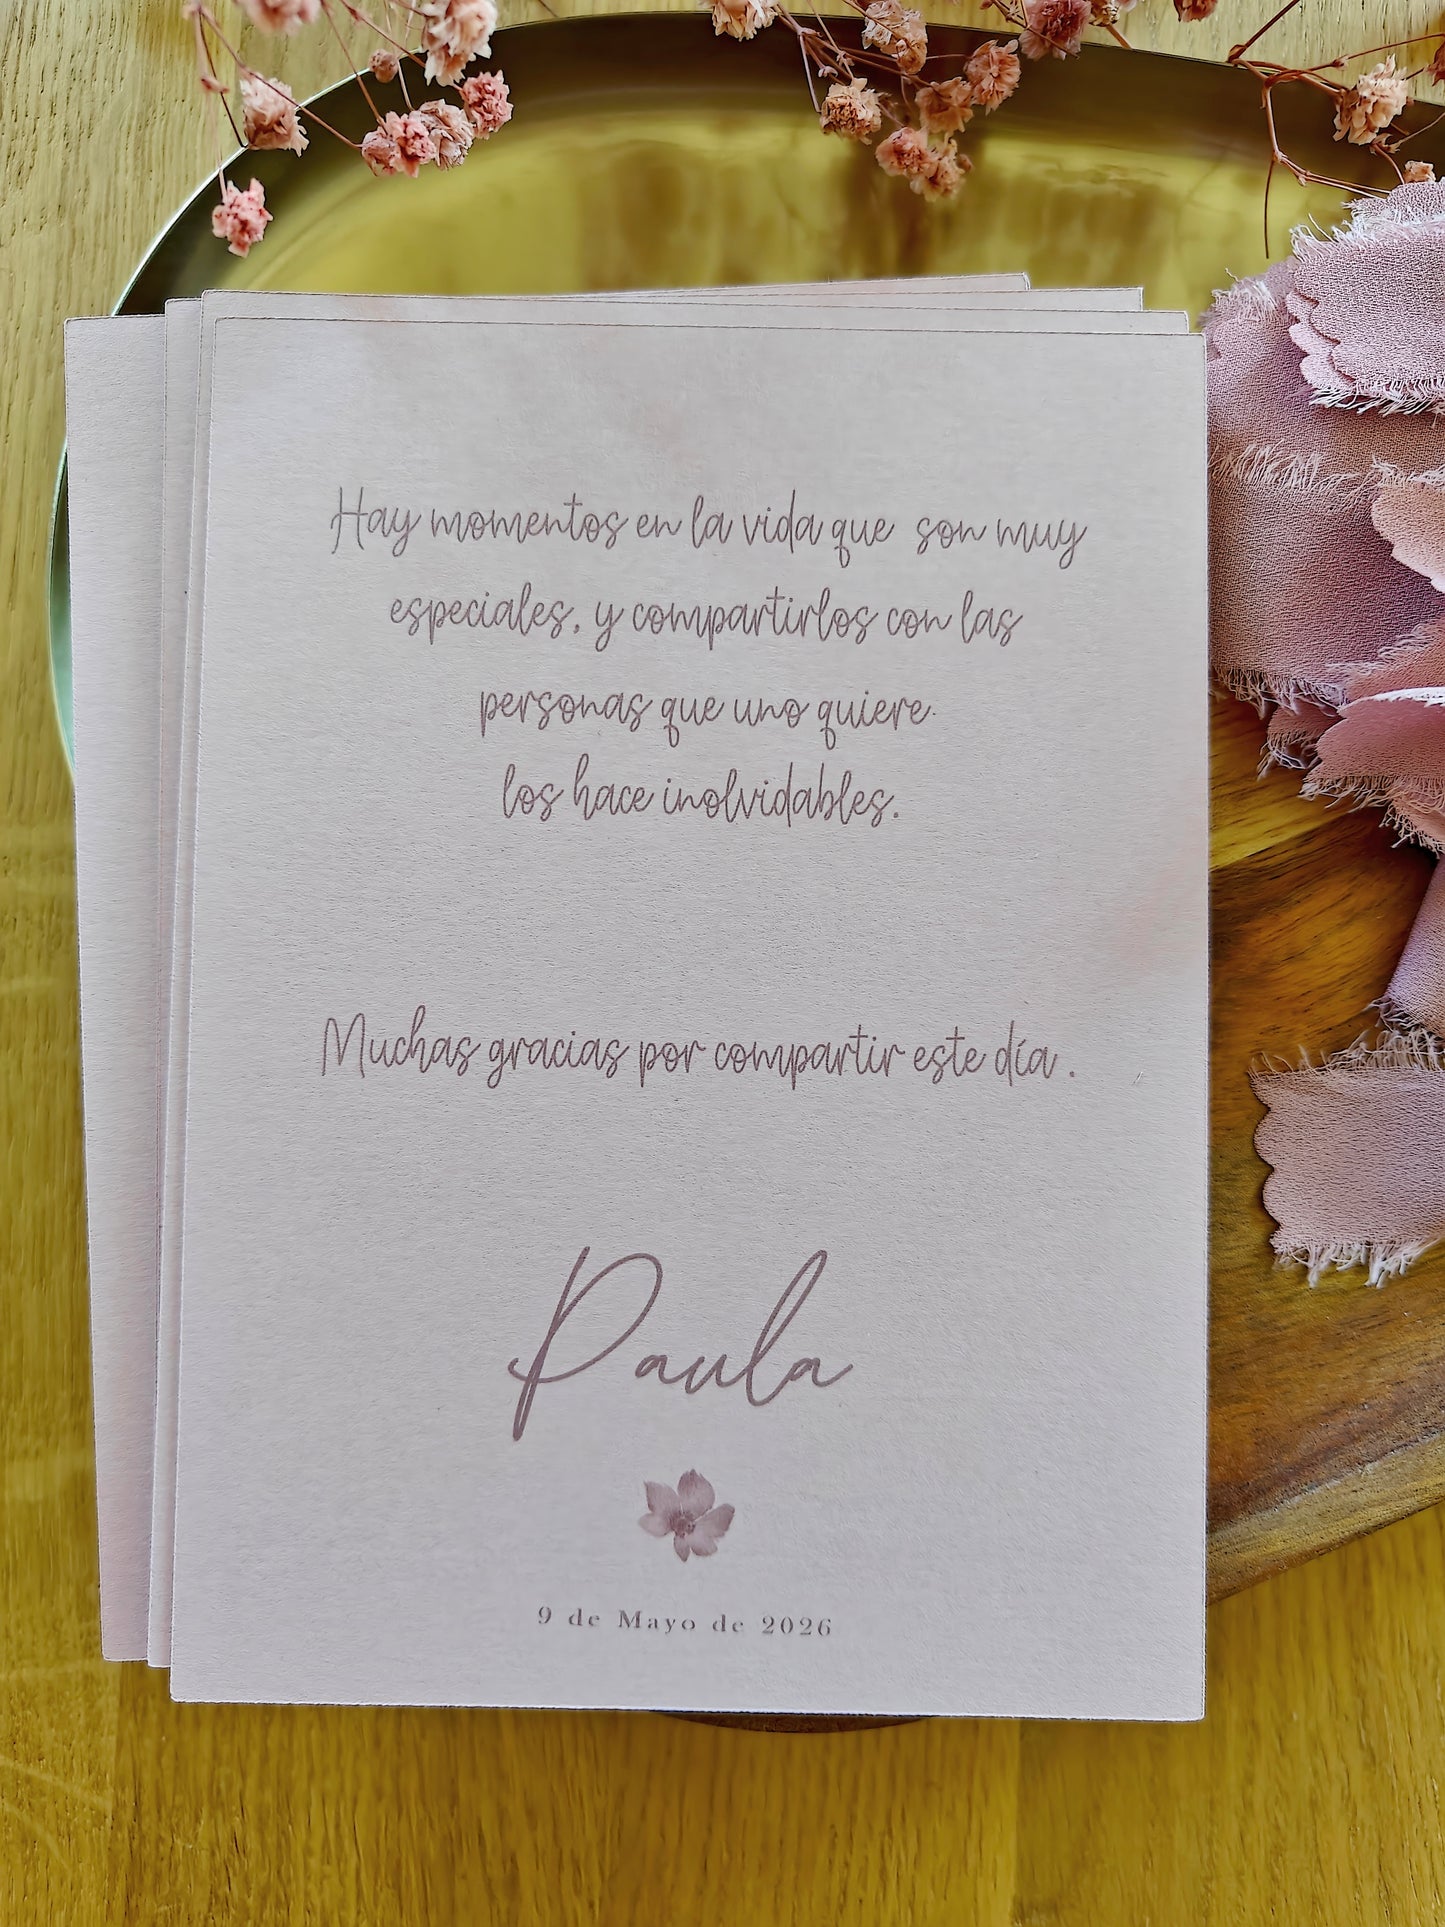 Hay momentos en la vida que son muy
especiales, y compartirlos con las
personas que uno quiere
los hace inolvidables.
Muchas gracias por compartir este día .
Paula
9 de Mayo de 2026